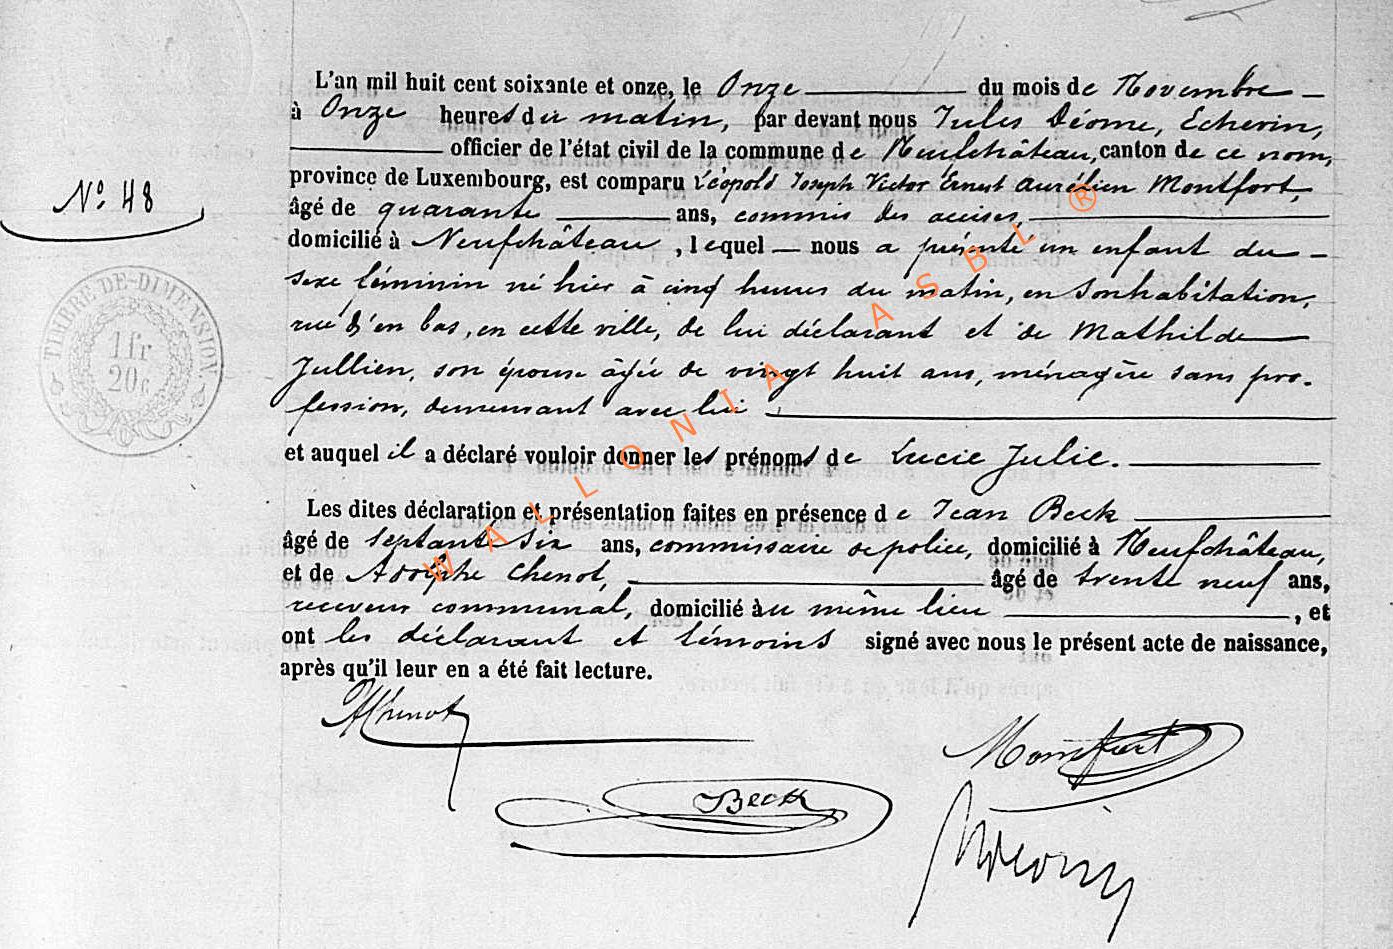 L'an mil huit cent soixante et onze, le Onze du mois de Novembre
à Onze heures du matin, par devant nous Jules Déome, Echevin,
officier de l'état civil de la commune de Neufchâteau, canton de ce nom,
province de Luxembourg, est comparu Léopold Joseph Victor Ernest Aurélien Montfort,
N° 48
âgé de quarante ans, commis des accises,
domicilié à Neufchâteau, lequel nous a présenté un enfant du
sexe féminin né hier à cinq heures du matin, en son habitation,
rue d'en bas, en cette ville, de lui déclarant et de Mathilde
Jullien, son épouse âgée de vingt huit ans, ménagère sans pro-
fession, demeurant avec lui
TIMBRE DE DIMENSION
1 fr
20 c
et auquel il a déclaré vouloir donner les prénoms de Lucie Julie.
Les dites déclaration et présentation faites en présence de Jean Beck
âgé de septante six ans, commissaire de police, domicilié à Neufchâteau,
et de Adolphe Chenot, âgé de trente neuf ans,
receveur communal, domicilié au même lieu, et
ont les déclarant et témoins signé avec nous le présent acte de naissance,
après qu'il leur en a été fait lecture.
AChenot
Montfort
Beck
WALLONIA ASBL ®